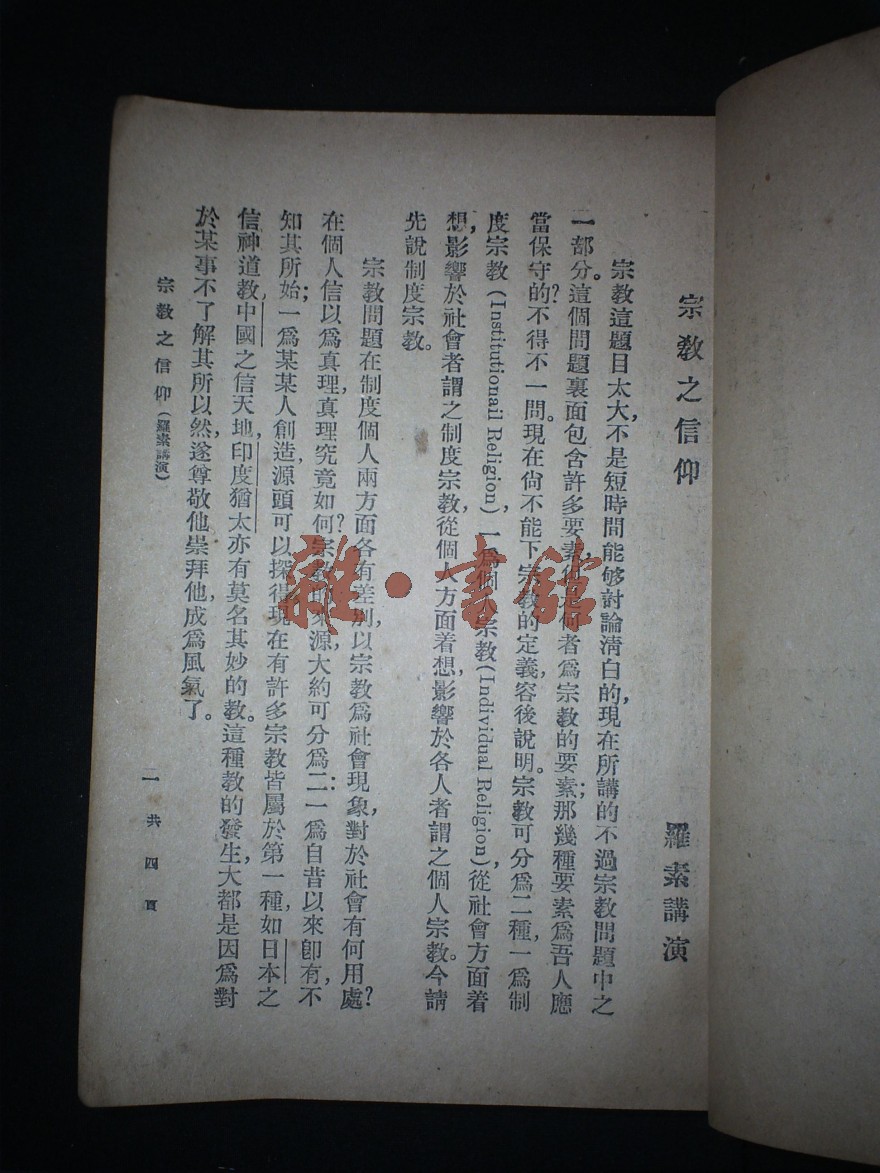 宗教之信仰
羅素講演
宗教這題目太大,不是短時間能够討論淸白的,現在所講的不過宗教問題中之
一部分。這個問題裏面包含許多要素,何者爲宗教的要素;那幾種要素爲吾人應
當保守的?不得不一問。現在尙不能下宗教的定義,容後說明。宗教可分爲二種,一爲制
度宗教(Institutionail Religion),一爲個人宗教(Individual Religion),從社會方面着
想,影響於社會者謂之制度宗教,從個人方面着想,影響於各人者謂之個人宗教。今請
先說制度宗教。
宗教問題在制度個人兩方面各有差別,以宗教爲社會現象,對於社會有何用處?
在個人信以爲真理,真理究竟如何?宗教的來源,大約可分爲二:一爲自昔以來卽有,不
知其所始;一爲某某人創造,源頭可以探得。現在有許多宗教皆屬於第一種,如日本之
信神道教,中國之信天地,印度猶太亦有莫名其妙的教。這種教的發生,大都是因爲對
於某事不了解其所以然,遂尊敬他崇拜他,成爲風氣了。
宗教之信仰(羅素講演)
一 共四頁
雜·書館